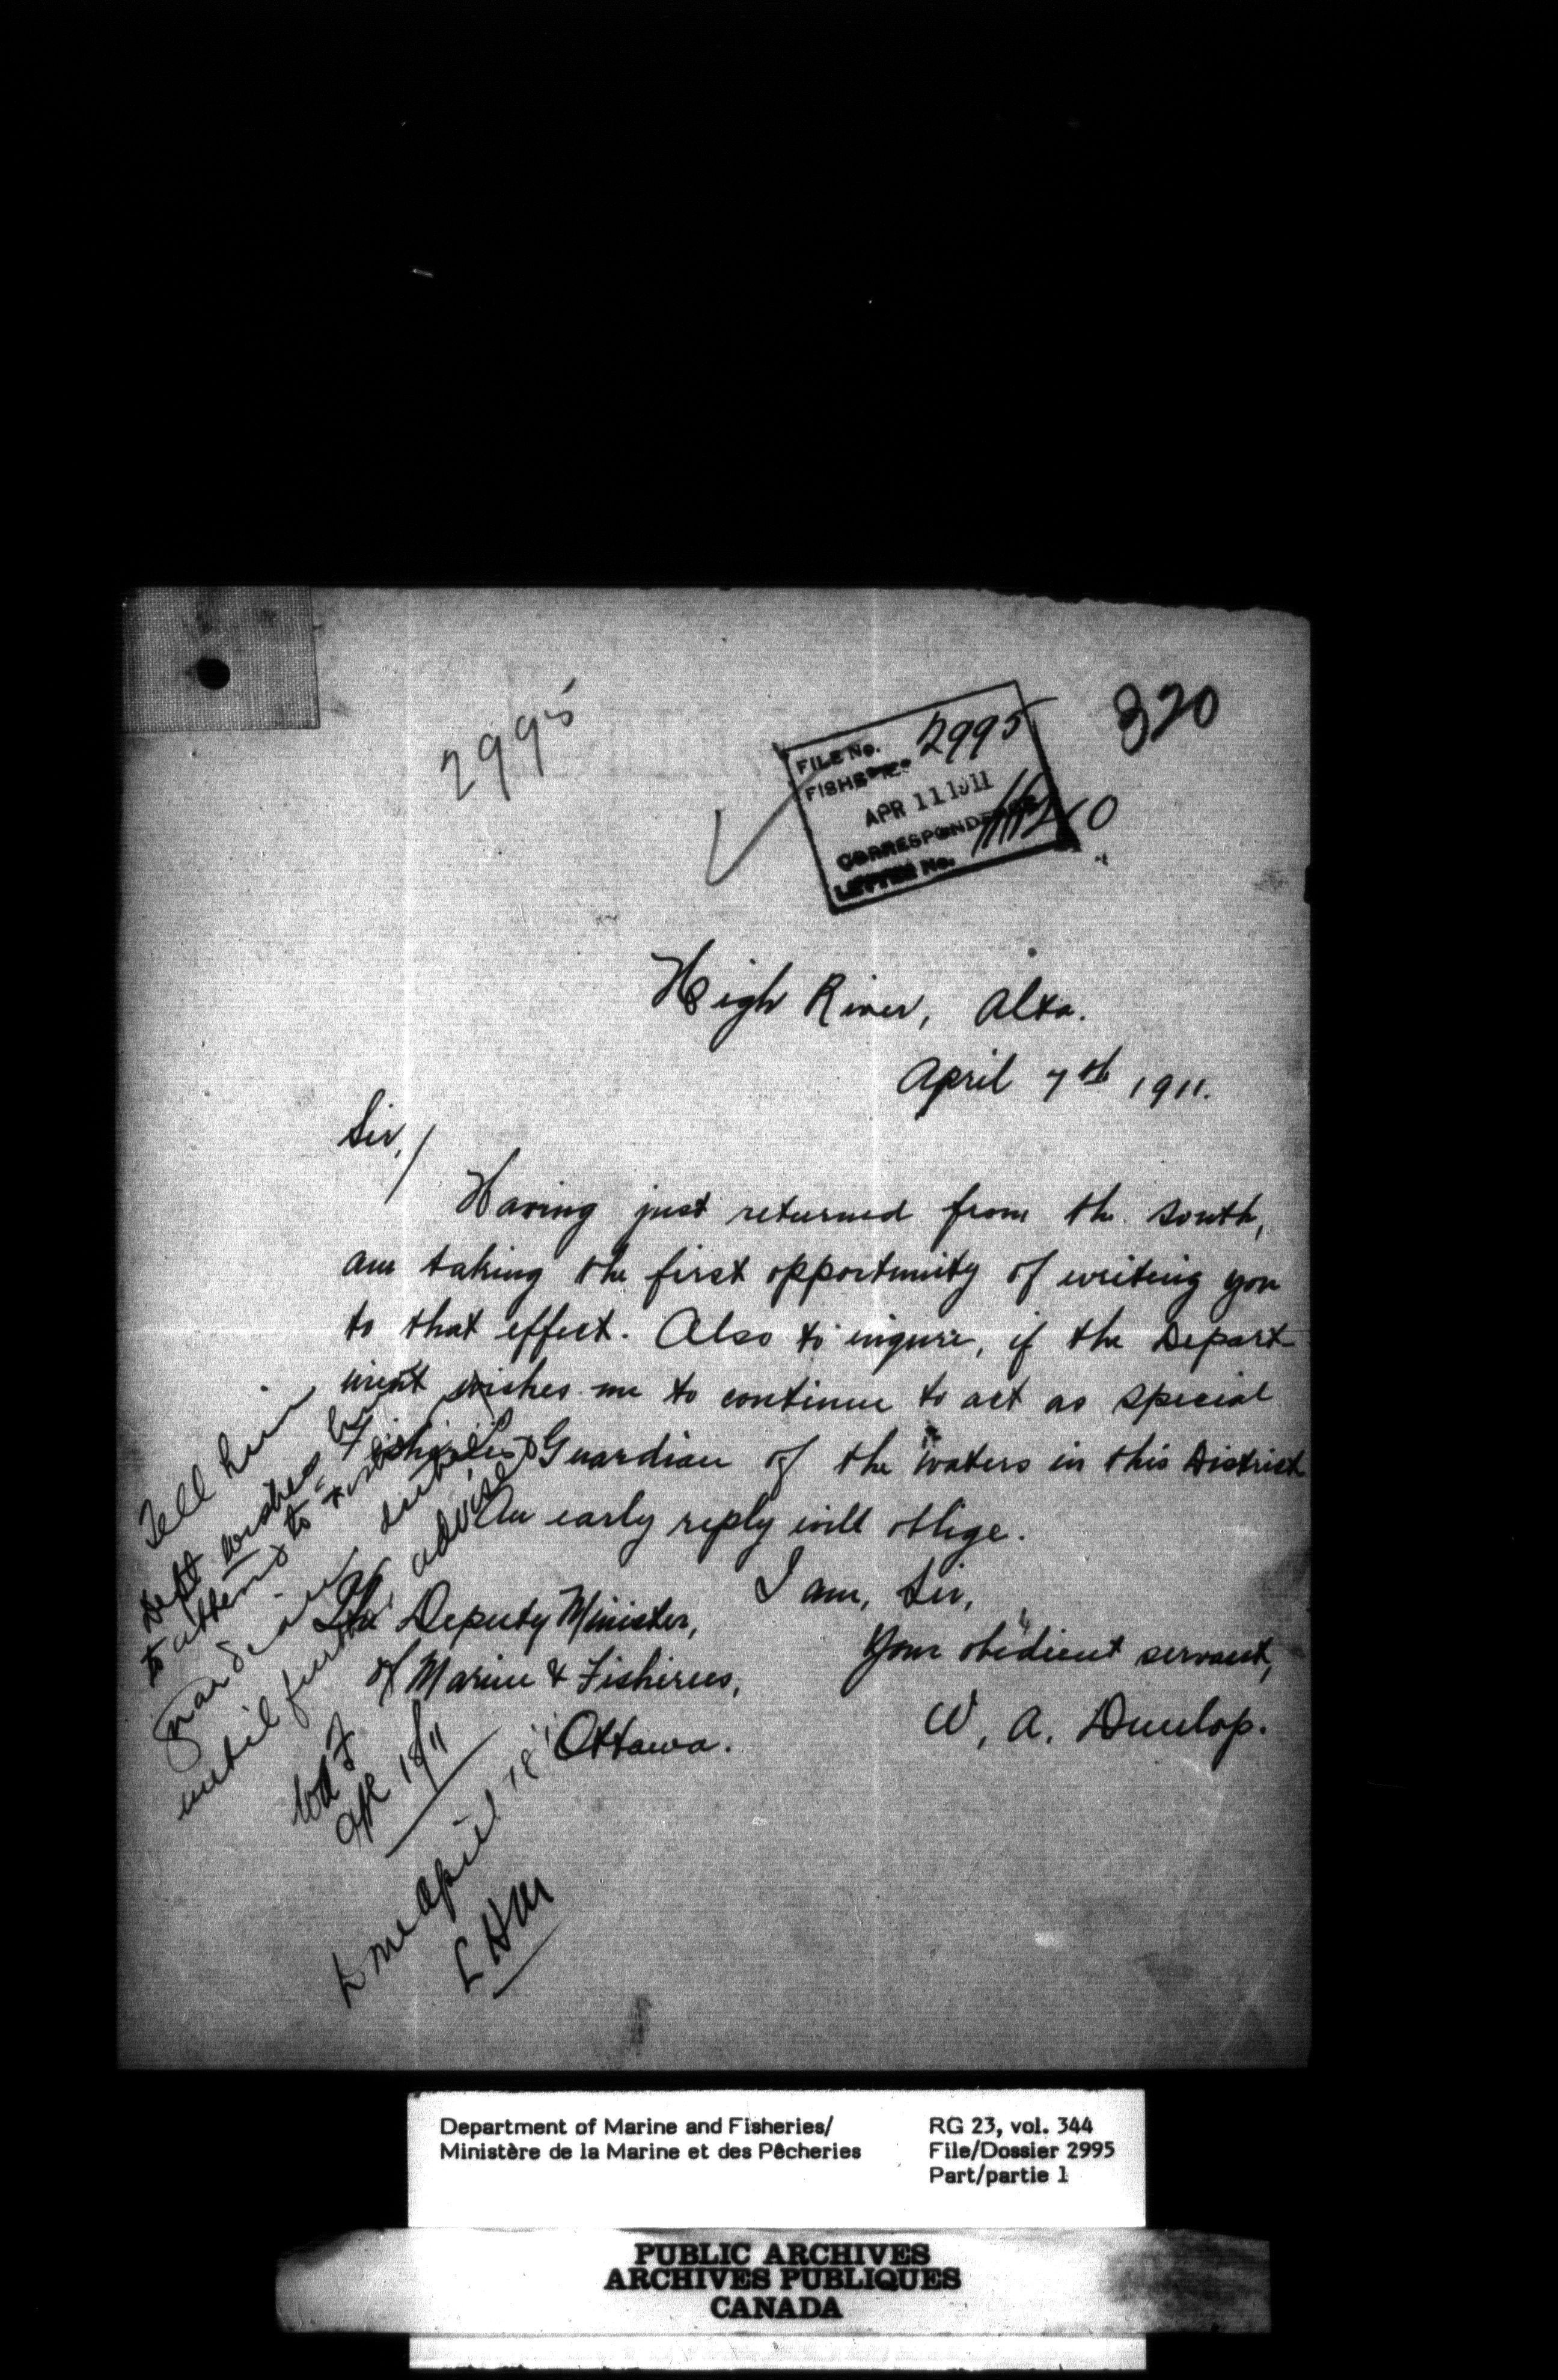 2995
320
FILE No. 2995
FISHERIES
APR 11 1911
CORRESPONDENCE
LETTER No.
High River, Alta.
April 7th 1911.
Sir,/
Having just returned from the south,
am taking the first opportunity of writing you
to that effect. Also to inqure, if the Depart
ment wishes me to continue to act as special
Fisheries Guardian of the waters in this District
An early reply will oblige.
I am, Sir,
Your obedient servant,
W. A. Dunlop.
The Deputy Minister,
of Marine & Fisheries,
Ottawa.
Tell him
Dept wishes him
to attend to
guardian duties
until further advised
Apl 18/11
April 18/11
Department of Marine and Fisheries/
Ministère de la Marine et des Pêcheries
RG 23, vol. 344
File/Dossier 2995
Part/partie 1
PUBLIC ARCHIVES
ARCHIVES PUBLIQUES
CANADA